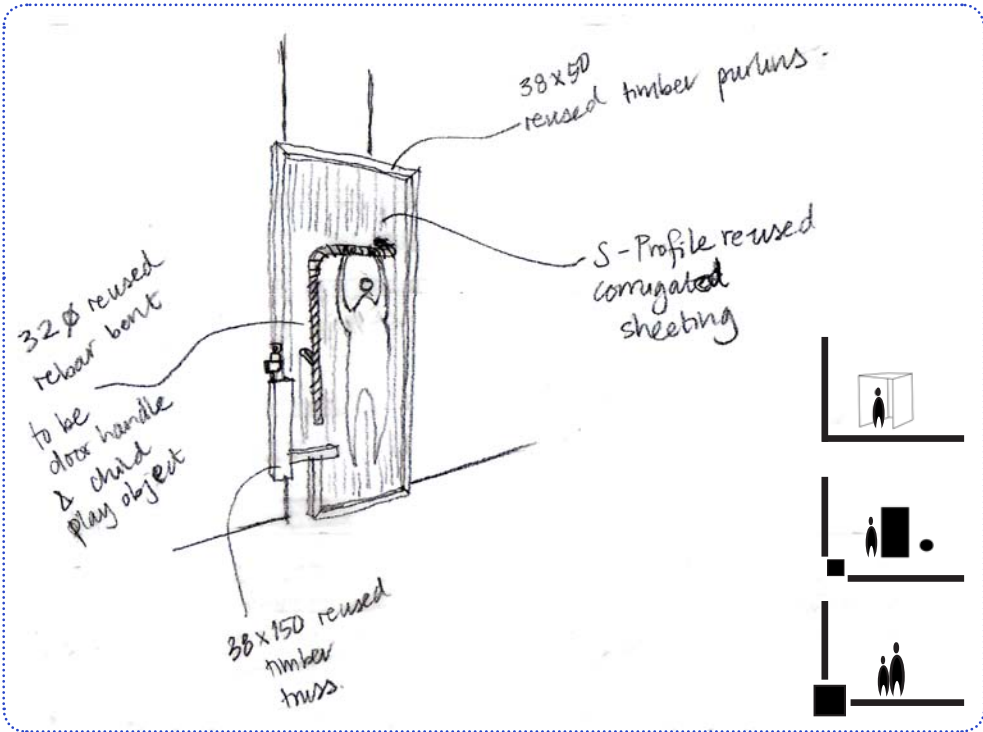 38x50
reused timber purlins.
S-Profile reused
corrugated
sheeting
32ϕ reused
rebar bent
to be
door handle
& child
play object
38x150 reused
timber
truss.